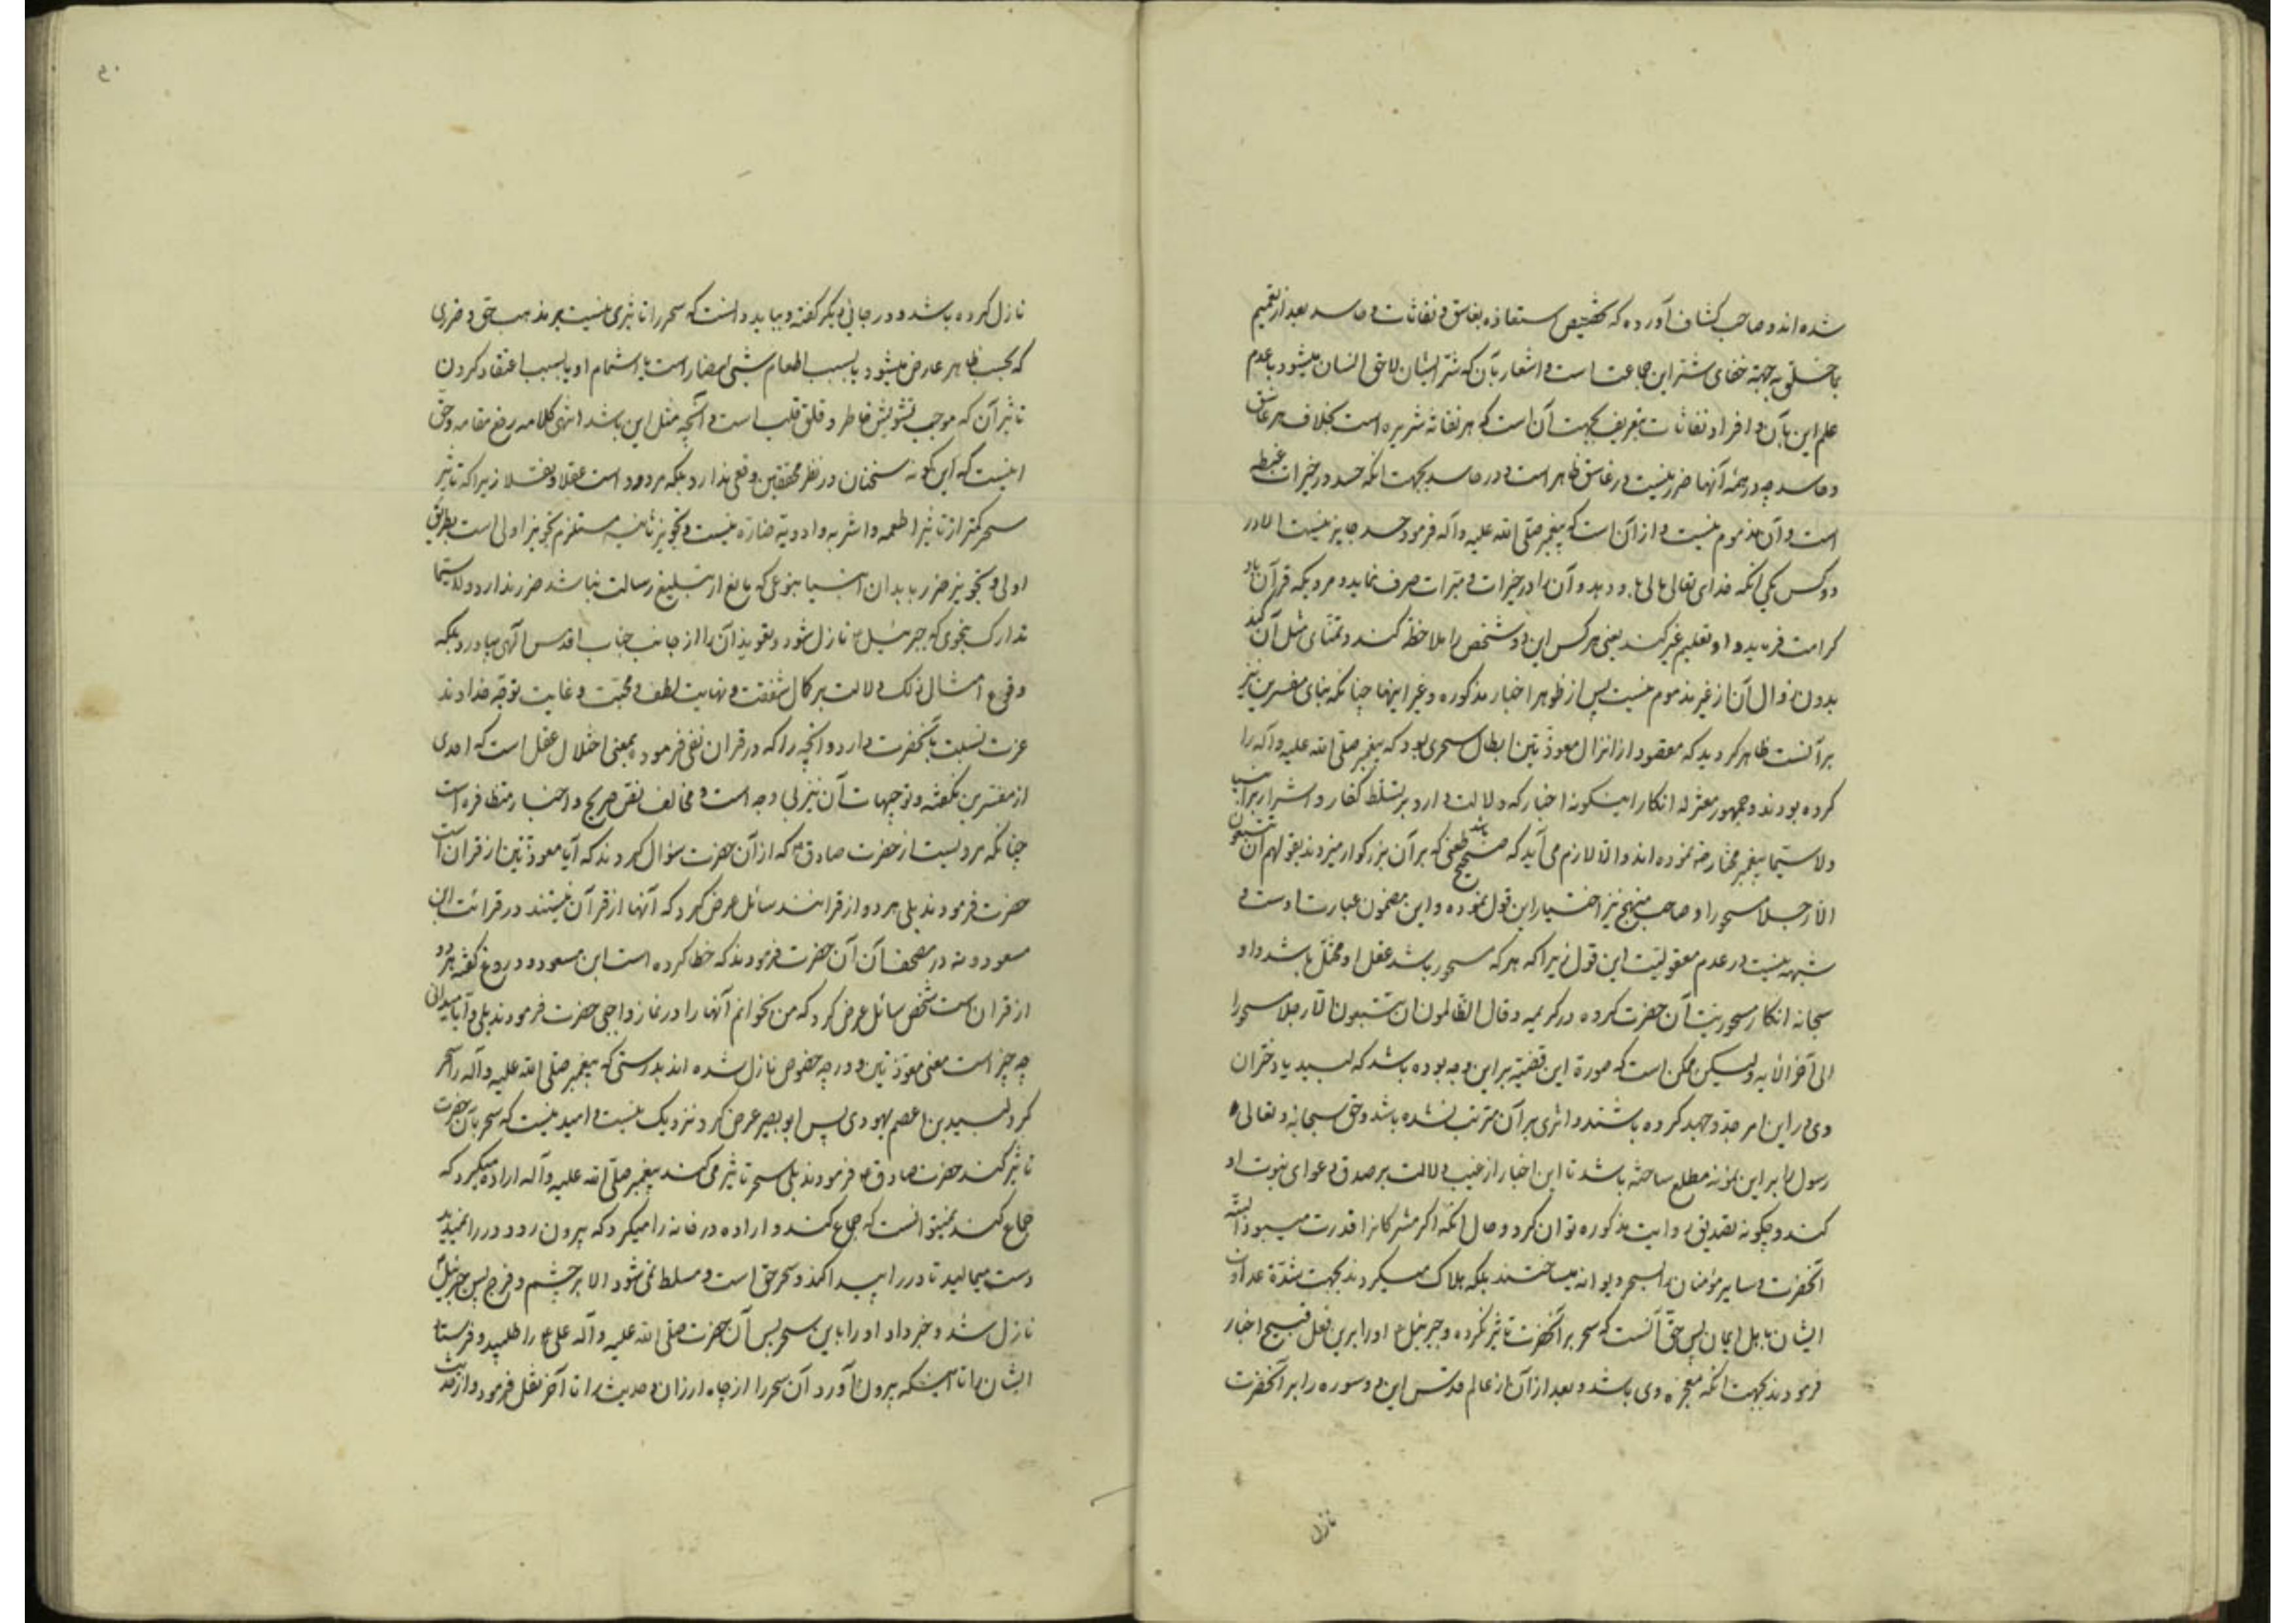 شده اند و صاحب کشاف آورده که تخصیص استعاذه بغاسق و نفاثات و حاسد بعد از تعمیم
بما خلق به جهته خفای شر این جماعت است و اشعار بآن که شر ایشان لاحق انسان میشود با عدم
علم این بآن و افراد نفاثات بتعریف بجهت آن است که هر نفاثه شریره است بخلاف هر غاسق
و حاسد چه در همه آنها ضرر نیست در غاسق ظاهر است و در حاسد بجهت انکه حسد در خیرات غبطه
است و آن مذموم نیست و از آن است که پیغمبر صلی الله علیه وآله فرمود حسد جایز نیست الا در
دو کس یکی انکه خدای تعالی مالی باو دهد و آن را در خیرات و مبرات صرف نماید و مردیکه قرآن باو
کرامت فرماید و او تعلیم غیر کند یعنی هر کس این دو شخص را ملاحظه کند و تمنای مثل آن کند
بدون زوال آن از غیر مذموم نیست پس از ظواهر اخبار مذکوره و غیر اینها چنانکه بنای مفسرین نیز
بر آنست ظاهر کردید که مقصود از انزال معوذتین ابطال سحری بود که پیغمبر صلی الله علیه وآله را
کرده بودند و جمهور معتزله انکار اینکونه اخبار که دلالت دارد بر تسلط کفار و اشرار بر انبیا
ولا سیما پیغمبر مختار ص نموده اند و الا لازم می آید که صحیح باشد طعنی که بر آن بزرکوار میزدند بقولهم ان تتبعون
الا رجلا مسحورا و صاحب منهج نیز اختیار این قول نموده و این مضمون عبارت اوست و
شبهه نیست در عدم معقولیت این قول زیرا که هر که مسحور باشد عقل او مختل باشد و او
سبحانه انکار مسحوریت آن حضرت کرده در کریمه و قال الظالمون ان تتبعون الا رجلا مسحورا
الی آخر الایه و لیکن ممکن است که صورة این قضیه بر این وجه بوده باشد که لبید یا دختران
وی در این امر جد و جهد کرده باشند و اثری بر آن مترتب نشده باشد و حق سبحانه و تعالی
رسول را بر این نمونه مطلع ساخته باشد تا این اخبار از غیب دلالت بر صدق دعوای نبوت او
کند و چکونه تصدیق روایت مذکوره توان کرد و حال انکه اکر مشرکانرا قدرت میبود البته
آنحضرت و سایر مؤمنان را بسحر دیوانه میساختند بلکه هلاک میکردند بجهت شدة عداوت
ایشان باهل ایمان پس حق آنست که سحر بر آنحضرت تاثیر نکرده و جبرئیل او را بر این فعل قبیح اخبار
فرمودند بجهت انکه معجزه وی باشد و بعد از آن از عالم قدس این دو سوره را بر آنحضرت
نازل
نازل کرده باشد و در جای دیکر کفته و بباید دانست که سحر را تاثیری نیست بر مذهب حق و ضرری
که بحسب ظاهر عارض میشود یا بسبب اطعام شیئی مضار است یا اشمام او یا بسبب اعتقاد کردن
تاثیر آن که موجب تشویش خاطر و قلق قلب است و آنچه مثل این باشد انتهی کلامه رفع مقامه و حق
اینست که این کونه سخنان در نظر محققین وقعی ندارد بلکه مردود است عقلا و نقلا زیرا که تاثیر
سحر کمتر از تاثیر اطعمه و اشربه و ادویه ضاره نیست و تجویز ثانیه مستلزم تجویز اولی است بطریق
اولی و تجویز ضرر بابدان انبیا بنوعی که مانع از تبلیغ رسالت نباشد ضرر ندارد ولاسیما
تدارک بنحوی که جبرئیل نازل شود و تعویذ آن را از جانب جناب اقدس الهی بیاورد بلکه
وقوع امثال ذلک دلالت بر کمال شفقت و نهایت لطف و محبت و غایت توجه خداوند
عزت نسبت بآنحضرت دارد و انچه را که در قران نفی فرموده بمعنی اختلال عقل است که احدی
از مفسرین نکفته و توجیهات آن نیز بی وجه است و مخالف نص صریح و اخبار متظافره است
چنانکه مرویست از حضرت صادق ع که از آن حضرت سؤال کردند که آیا معوذتین از قران است
حضرت فرمودند بلی هر دو از قرانند سائل عرض کرد که آنها از قرآن نیستند در قرائت ابن
مسعود و نه در مصحف آن آن حضرت فرمودند که خطا کرده است ابن مسعود و دروغ کفته هر دو
از قران است شخص سائل عرض کرد که من بخوانم آنها را در نماز واجبی حضرت فرمودند بلی و آیا میدانی
چه چیز است معنی معوذتین و در چه خصوص نازل شده اند بدرستی که پیغمبر صلی الله علیه وآله را سحر
کرد لبید بن اعصم یهودی پس ابو بصیر عرض کرد نزدیک نیست و امید نیست که سحر بآن حضرت
تاثیر کند حضرت صادق ع فرمودند بلی سحر تاثیر می کند پیغمبر صلی الله علیه وآله اراده میکرد که
جماع کند نمیتوانست که جماع کند و اراده در خانه را میکرد که بیرون رود در را نمیدید
دست میمالید تا در را پیدا کند و سحر حق است و مسلط نمی شود الا بر چشم و فرج پس جبرئیل
نازل شد و خبر داد او را باین سحر پس آن حضرت صلی الله علیه وآله علی ع را طلبید و فرستاد
ایشان را تا اینکه بیرون آورد آن سحر را از چاه ارزان و حدیث را تا آخر نقل فرمود و از حدیث